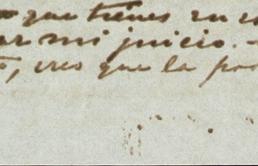 que tienes en
mi juicio. -
creo que la